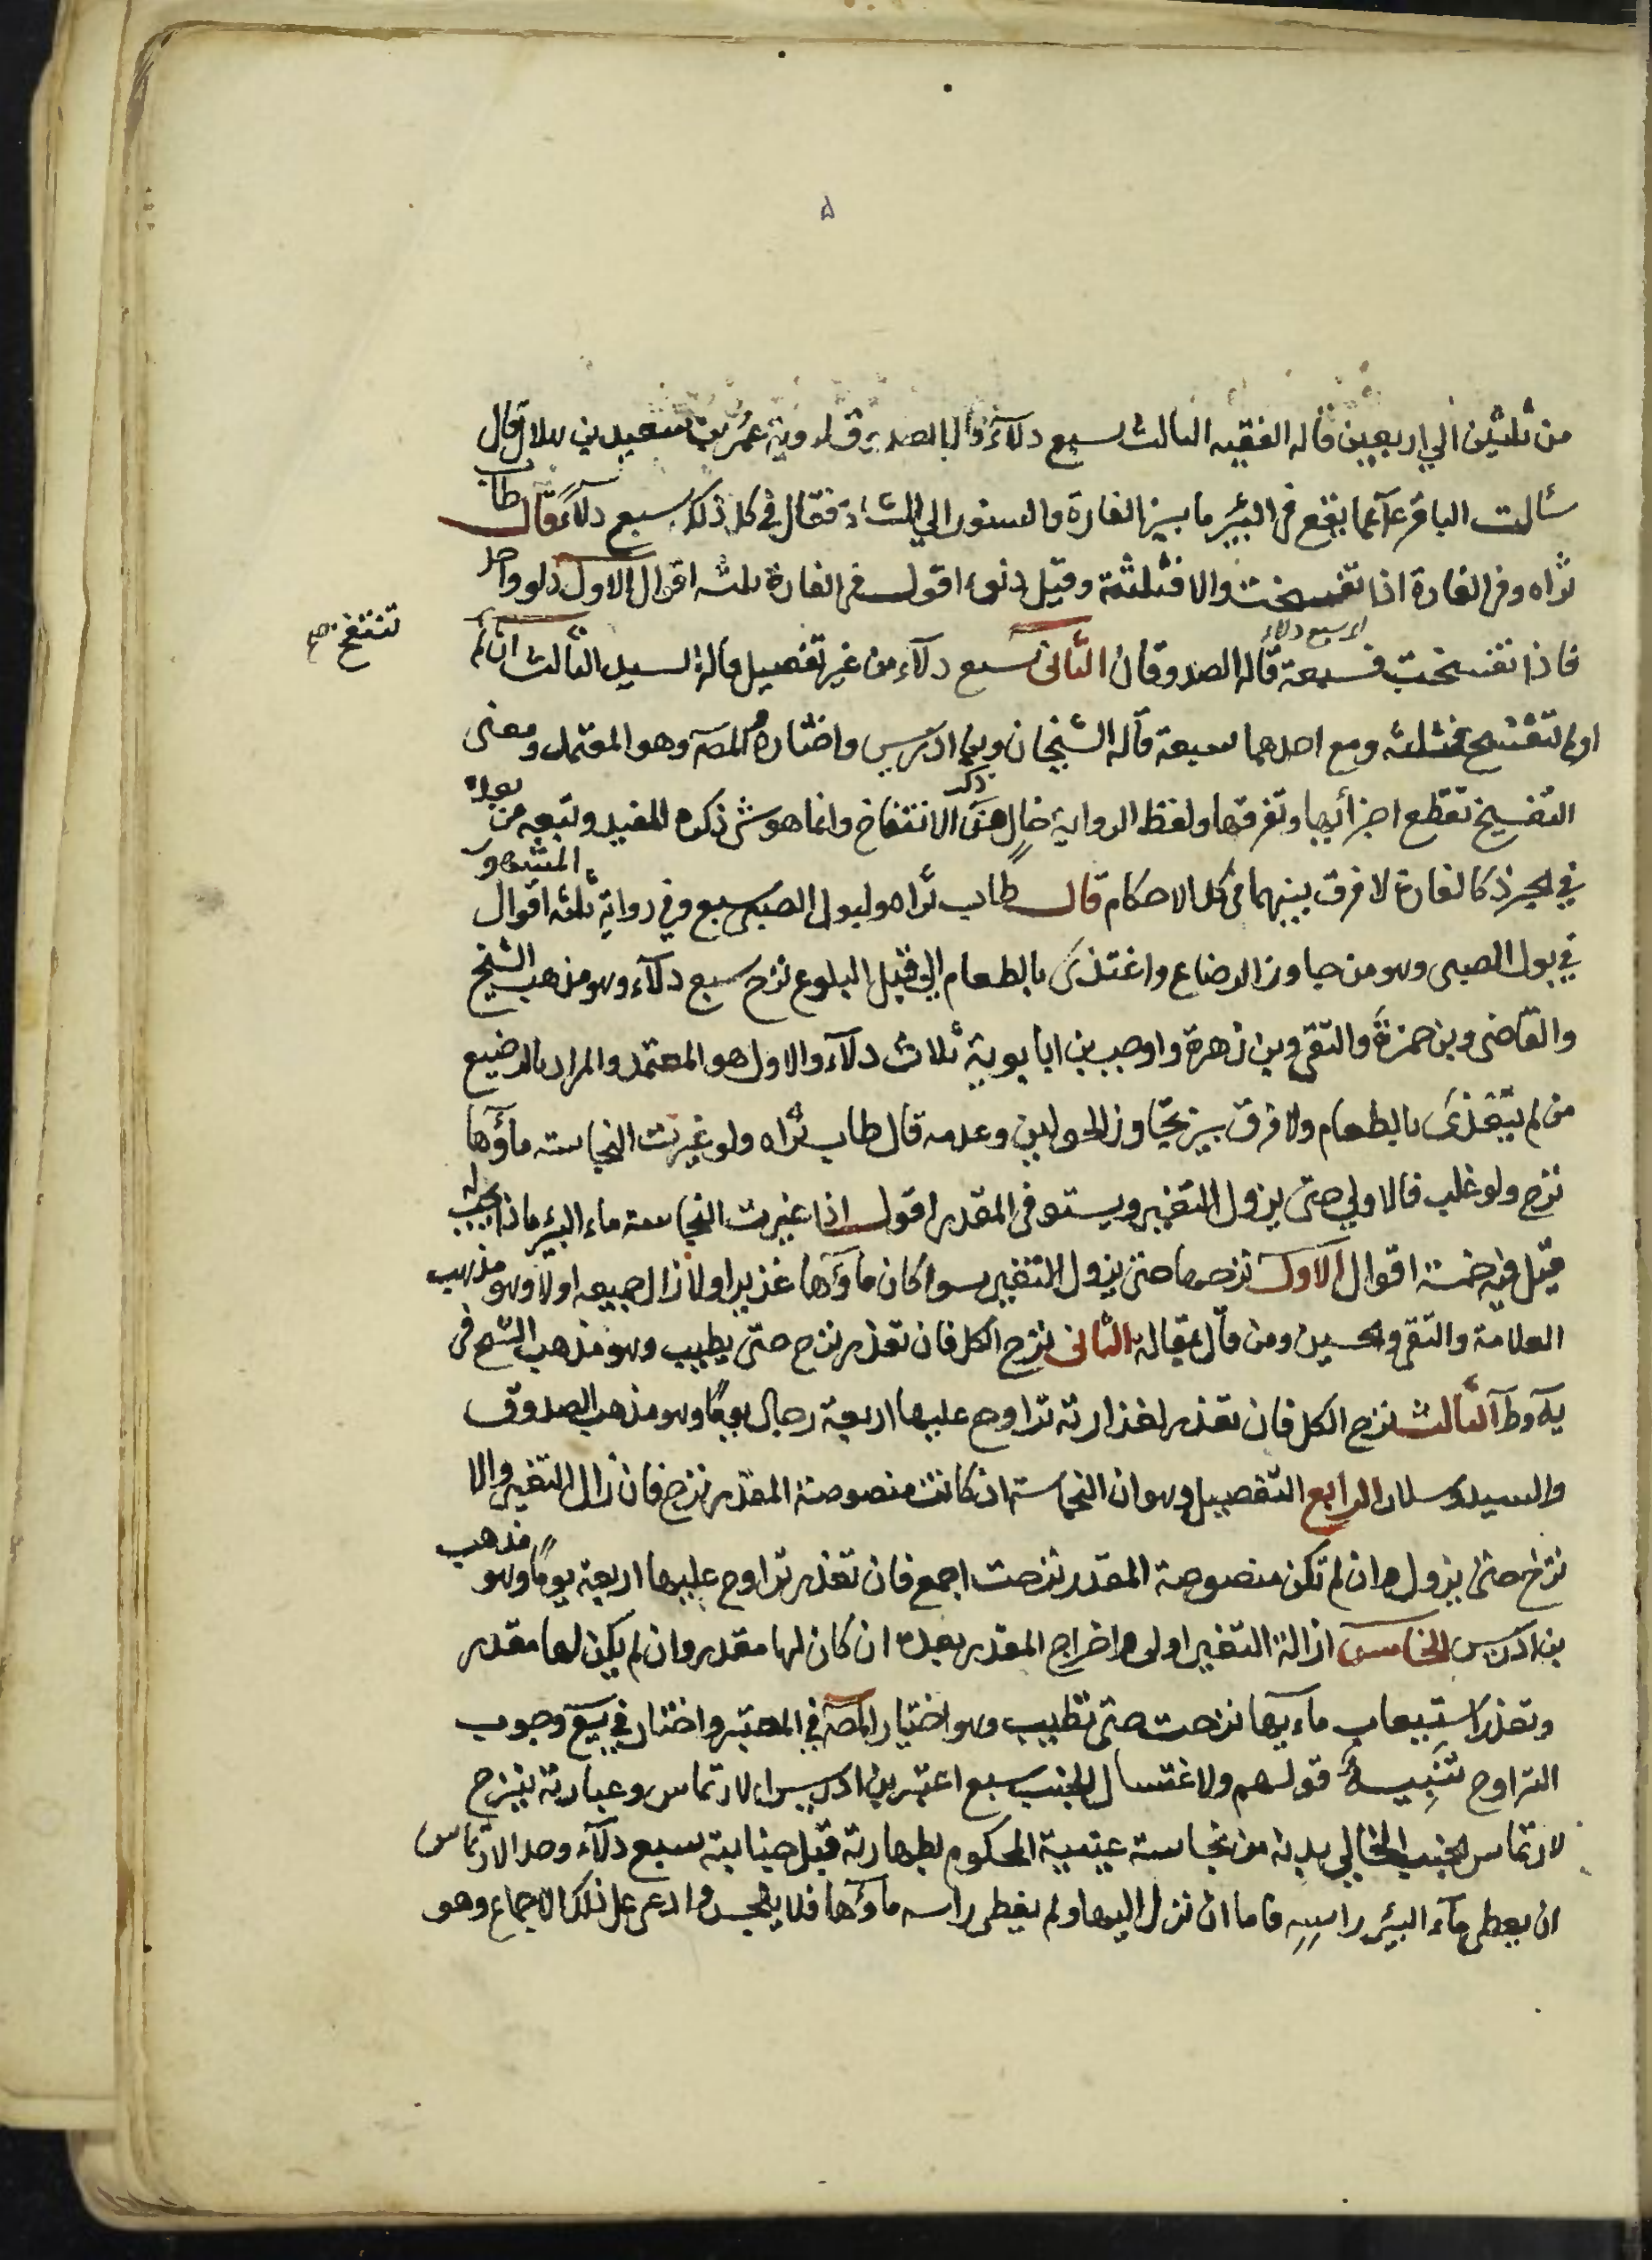 ۵
من ثلثين الي اربعين قاله الفقيه الثالث سبع دلآء قاله الصدوق لروية عمر بن سعيد بن هلال قال
سئالت الباقر عآ عما يقع في البئر ما بين الفارة والسنور الي الشاة فقال في كل ذلك سبع دلآء قال طاب
ثراه وفي الفارة اذا تفسخت والا فثلثة وقيل دلو اقول في الفارة ثلثه اقوال الاول دلو واحد
فاذا تفسخت فسبعة قاله الصدوقان الثاني سبع دلآء من غير تفصيل قاله السيد الثالث ان لم
اي سبع دلاء
تنتفخ صح
اولم تتفسخ فثلثه ومع احدهما سبعة قاله الشيخان وبن ادريس واختاره المصه وهو المعتمد ومعنى
التفسخ تقطع اجزائها وتفرقها ولفظ الرواية خالٍ عن ذكر الانتفاخ وانما هو شئ ذكره المفيد وتبعه من بعده
في الجرذ كالفارة لا فرق بينهما في كل الاحكام قال طاب ثراه ولبول الصبى سبع وفي رواية ثلثه اقوال المشهور
في بول الصبى وهو من جاوز الرضاع واغتذى بالطعام الي قبل البلوع نزح سبع دلآء وهو مذهب الشيخ
والقاضى وبن حمزة والتقى وبن زهرة واوجب بن ابابوية ثلاث دلآء والاول هو المعتمد والمراد بالرضيع
من لم يتغذى بالطعام ولا فرق بين تجاوز الحولين وعدمه قال طاب ثراه ولو غيرت النجاسته ماؤها
نزح ولو غلب فالاولي حتى يزول التغير ويستوفى المقدر اقول اذا غيرت النجاسة ماء البئر ماذا يجب له
قيل فيه خمسة اقوال الاول نزحها حتى يزول التغير سوا كان ماؤها غذيرا اولا زال جميعه اولا وهو مذهب
العلامة والتقى والحسين ومن قال بمقاله الثانى نزح الكل فان تعذر نزح حتى يطيب وهو مذهب الشيخ في
يه وط الثالث نزح الكل فان تعذر لغذارته تراوح عليها اربعة رجال يومًا وهو مذهب الصدوق
والسيد وسلار الرابع التفصيل وهو ان النجاسته ان كانت منصوصة المقدر نزح فان زال التغير والا
نزح حتى يزول وان لم تكن منصوصة المقدر نزحت اجمع فان تعذر تراوح عليها اربعة يومًا وهو مذهب
بن ادريس الخامس ازالة التغير اولى واخراج المقدر بعده ان كان لها مقدر وان لم يكن لها مقدر
وتعذر استيعاب ماءيها نزحت حتى تطيب وهو اختيار المصه في المعتبر واختار في يع وجوب
التراوح تنبيه قولهم ولاغتسال الجنب سبع اعتبر بن ادريس الارتماس وعبارته ينزح
لارتماس الجنب الخالي بدنه من نجاسته عينية المحكوم بطهارته قبل جنابيته سبع دلآء وحد الارتماس
ان يعطى مآء البئر راسه فاما ان نزل اليها ولم يغطى راسه ماؤها فلا ينجس وادعى على ذلك الاجماع وهو